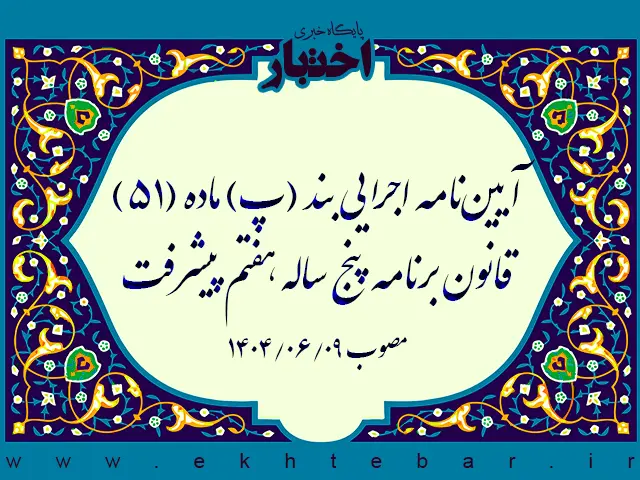 پایگاه خبری
اختبار
آیین‌نامه اجرایی بند (پ) ماده (۵۱)
قانون برنامه پنج ساله هفتم پیشرفت
مصوب ۱۴۰۴/۰۶/۰۹
www.ekhtebar.ir